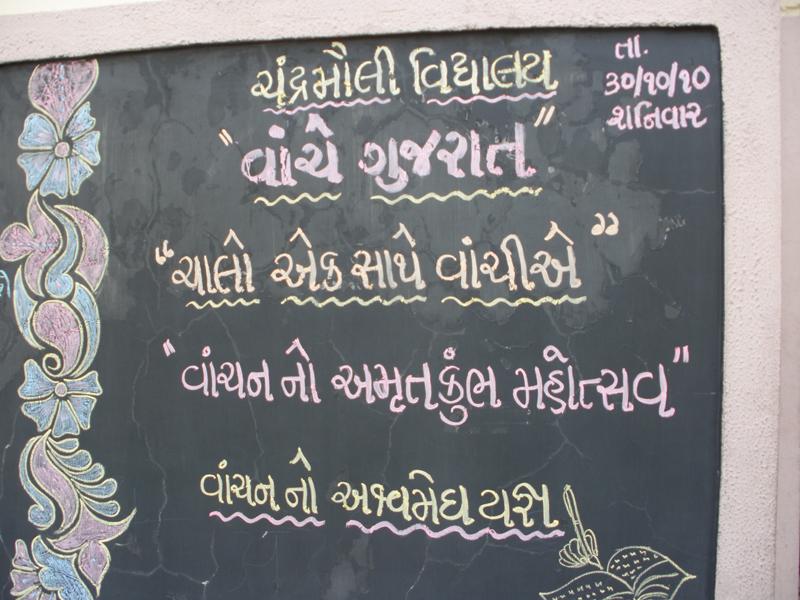 ચંદ્રમૌલી વિદ્યાલય
તા.
૩૦/૧૦/૧૦
શનિવાર
"વાંચે ગુજરાત"
"ચાલો એક સાથે વાંચીએ"
"વાંચન નો અમૃતકુંભ મહોત્સવ"
વાંચન નો અશ્વમેઘ યજ્ઞ